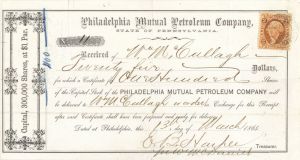 Philadelphia Mutual Petroleum Company,
STATE OF PENNSYLVANIA.
No. 11
Received of Wm McCullagh
Seventy five Dollars,
for which a Certificate for One Hundred Shares
of the Capital Stock of the PHILADELPHIA MUTUAL PETROLEUM COMPANY will
be delivered to Wm McCullagh or order in Exchange for this Receipt
after said Certificates shall have been prepared and ready for delivery.
Dated at Philadelphia, this 13 day of March 1865
Treasurer.
Capital, 300,000 Shares, at $1. Par.